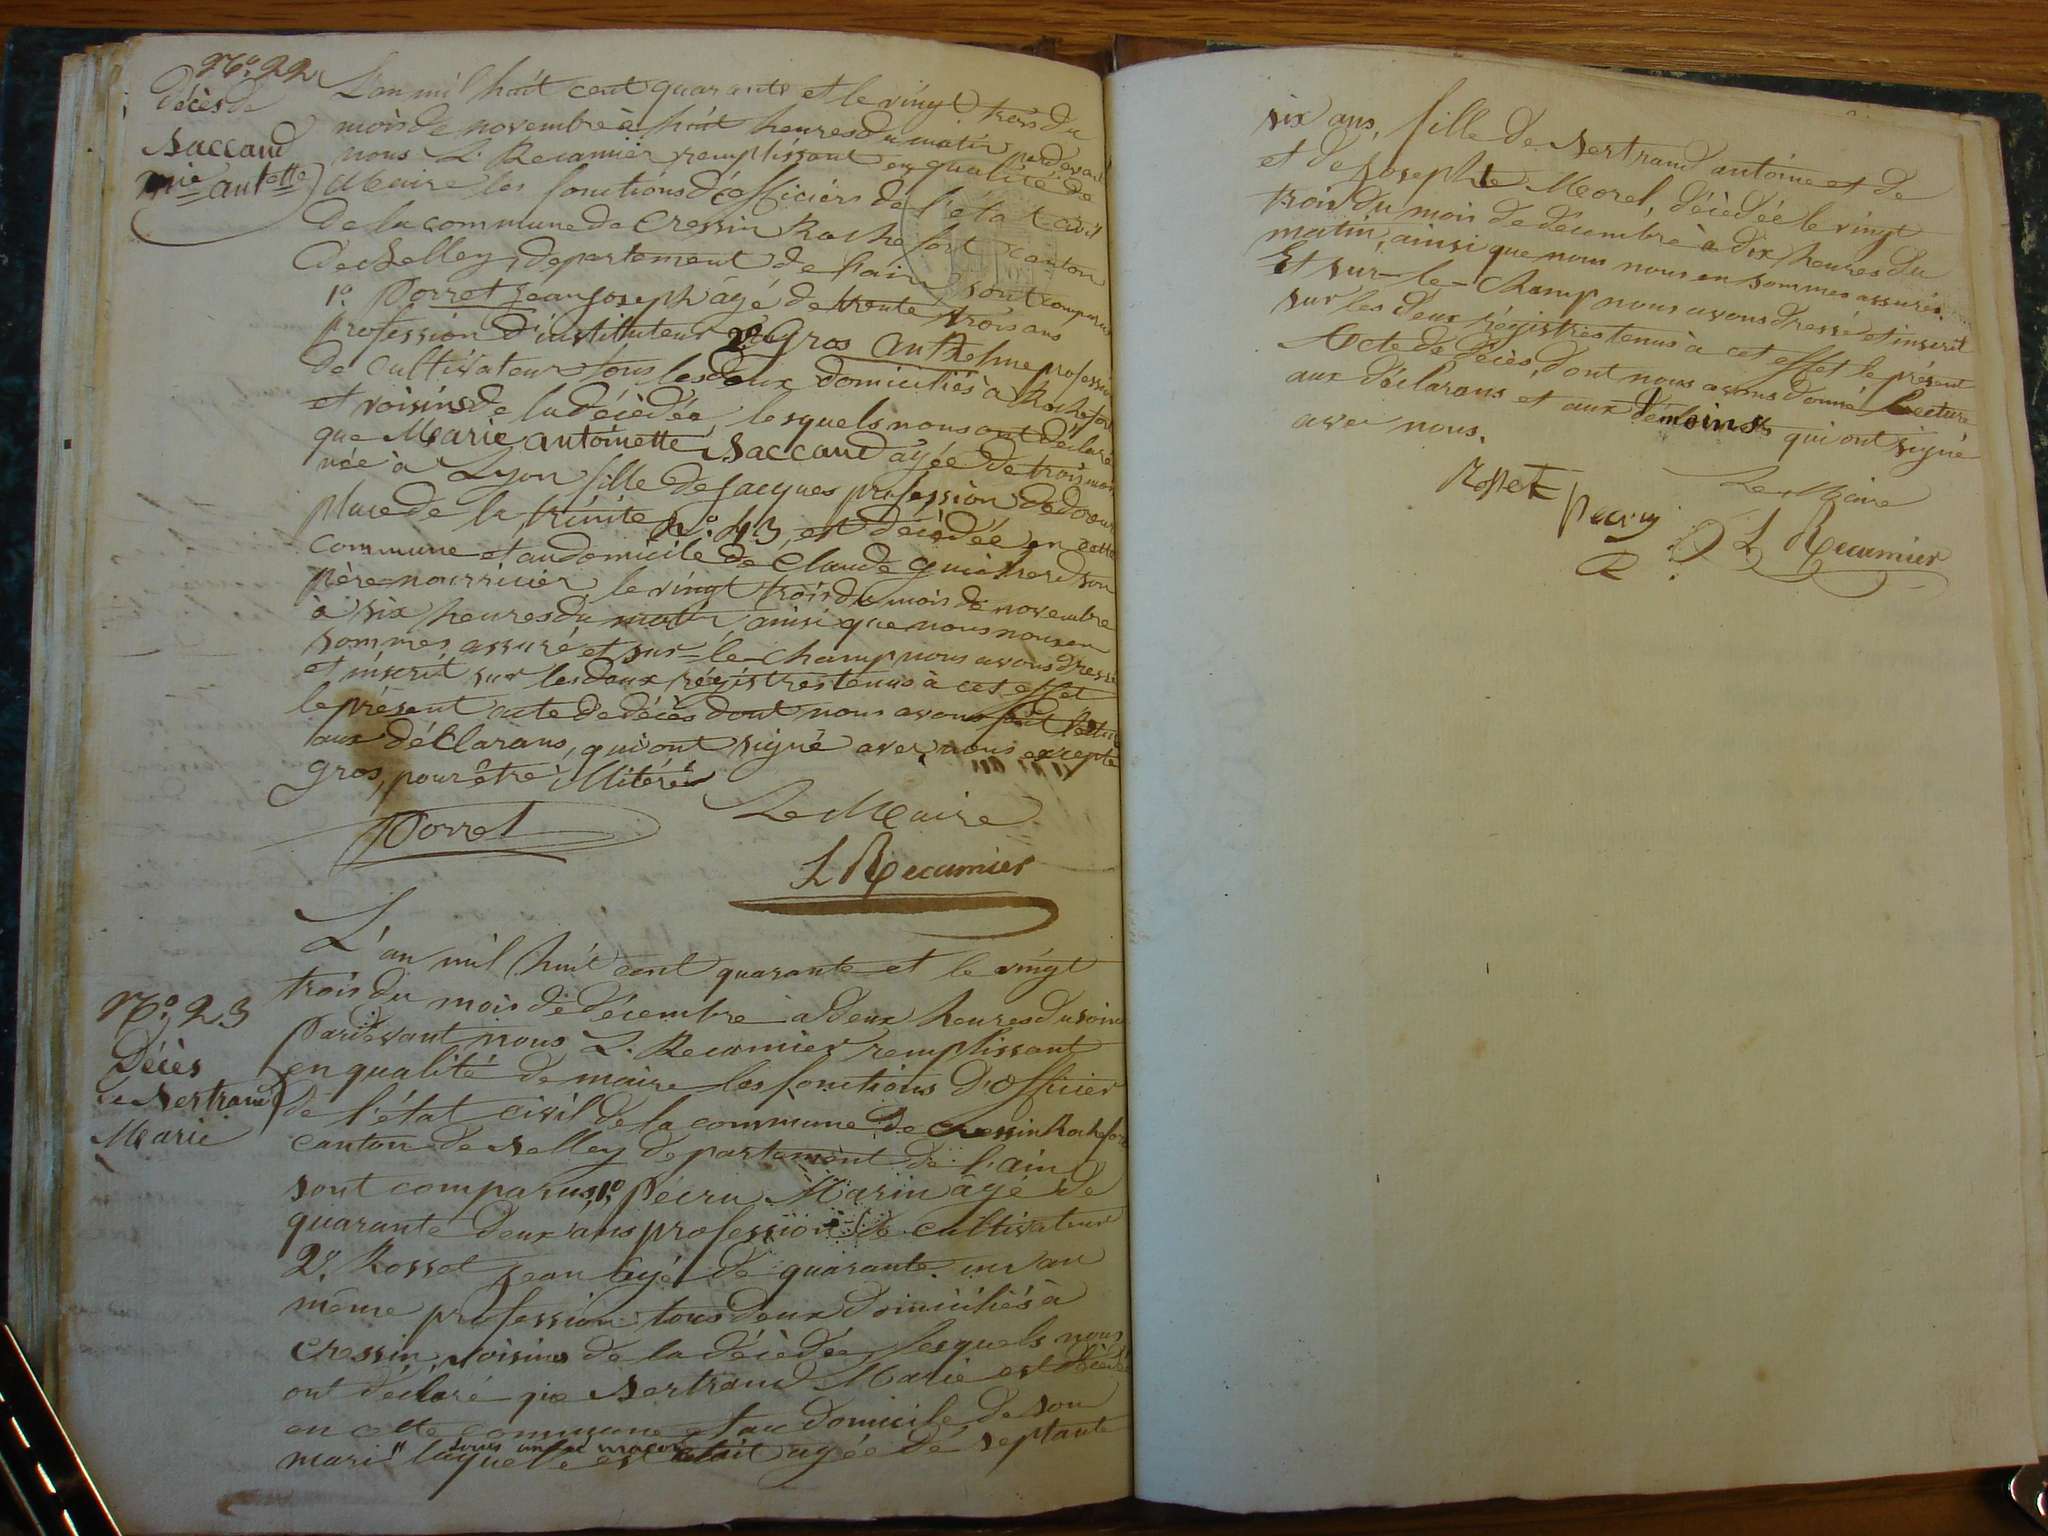 N.o 22
décès de
Baccand
Mie antette
L'an mil huit cent quarante et le vingt trois du
mois de novembre à huit heures du matin pardevant
nous L. Recamier remplissant en qualité de
Maire les fonctions d'officiers de l'état civil
de la commune de Cressin Rochefort canton
de Belley, departement de l'ain, sont comparus
1.o Porret jean joseph agé de trente trois ans
profession d'instituteur 2.o Gros Anthelme profession
de cultivateur tous les deux domiciliés à Rochefort
et voisins de la décédée, lesquels nous ont déclaré
que Marie antoinette Baccand agée de trois mois
née à Lyon fille de jacques profession de
place de la trinité N.o 43, est décédée en cette
commune et au domicile de Claude son
père nourricier, le vingt trois du mois de novembre
à six heures du matin ainsi que nous nous en
sommes assuré et sur-le-champ nous avons dressé
et inscrit sur les deux régistres tenus à cet effet
le présent acte de décès dont nous avons fait lecture
aux déclarans, qui ont signé avec nous excepté
Gros, pour être illitéré
Porret
Le Maire
L Recamier
N.o 23
Décès
de Bertrand
Marie
L'an mil huit cent quarante et le vingt
trois du mois de décembre à deux heures du soir
pardevant nous L. Recamier remplissant
en qualité de maire les fonctions d'officier
de l'état civil de la commune de Cressin Rochefort
canton de Belley departement de l'ain
sont comparus, 1.o Pécru Marin âgé de
quarante deux ans profession de cultivateur
2.o Rosset jean âgé de quarante un an
même profession tous deux domiciliés à
Cressin, voisins de la décédée, lesquels nous
ont déclaré que Bertrand Marie est décédée
en cette commune et au domicile de son
mari laquelle était agée de septante
six ans, fille de Bertrand antoine et de
et de Josephte Morel, décédée le vingt
trois du mois de décembre à dix heures du
matin, ainsi que nous nous en sommes assurés.
Et sur-le-champ nous avons dressé et inscrit
sur les deux régistres tenus à cet effet le présent
Acte de décès, dont nous avons donné lecture
aux déclarans et aux témoins qui ont signé
avec nous.
Rosset
Pecru
Le Maire
L Recamier